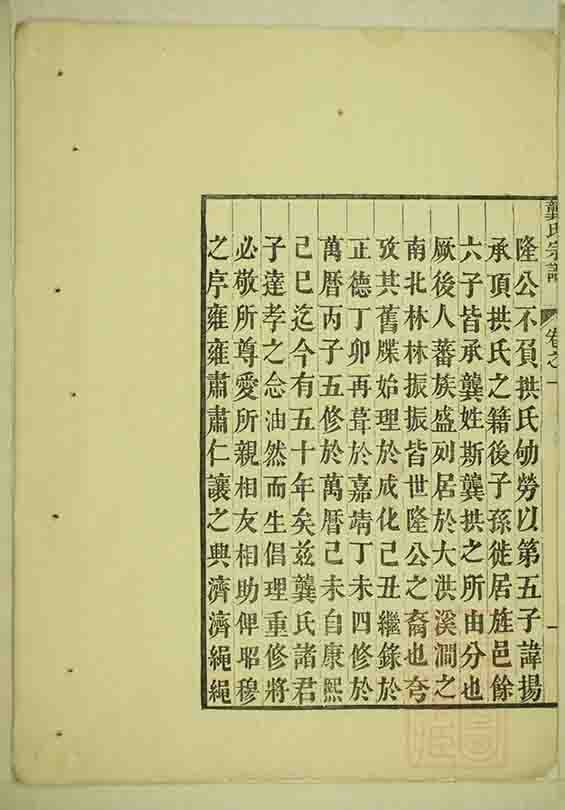 龔氏宗譜
卷之一
一
隆公不負拱氏劬勞以第五子諱揚
承頂拱氏之籍後子孫徙居旌邑餘
六子皆承龔姓斯龔拱之所由分也
厥後人蕃族盛列居於大洪溪澗之
南北林林振振皆世隆公之裔也夸
攷其舊牒始理於成化己丑繼錄於
正德丁卯再葺於嘉靖丁未四修於
萬曆丙子五修於萬曆己未自康熙
己巳迄今有五十年矣兹龔氏諸君
子達孝之念油然而生倡理重修將
必敬所尊愛所親相友相助俾昭穆
之序雍雍肅肅仁讓之典濟濟繩繩